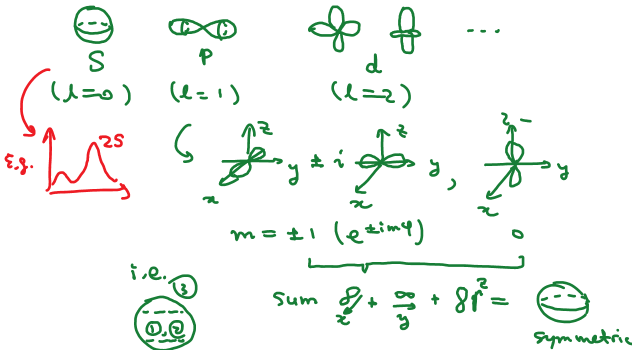 S p d ...
(l=0) (l=1) (l=2)
E.g. 2S
z z z
y ± i y , y
x x x
m = ±1 (e^{±imφ}) 0
i.e. 3
sum x + y + = 
1, 2
symmetric